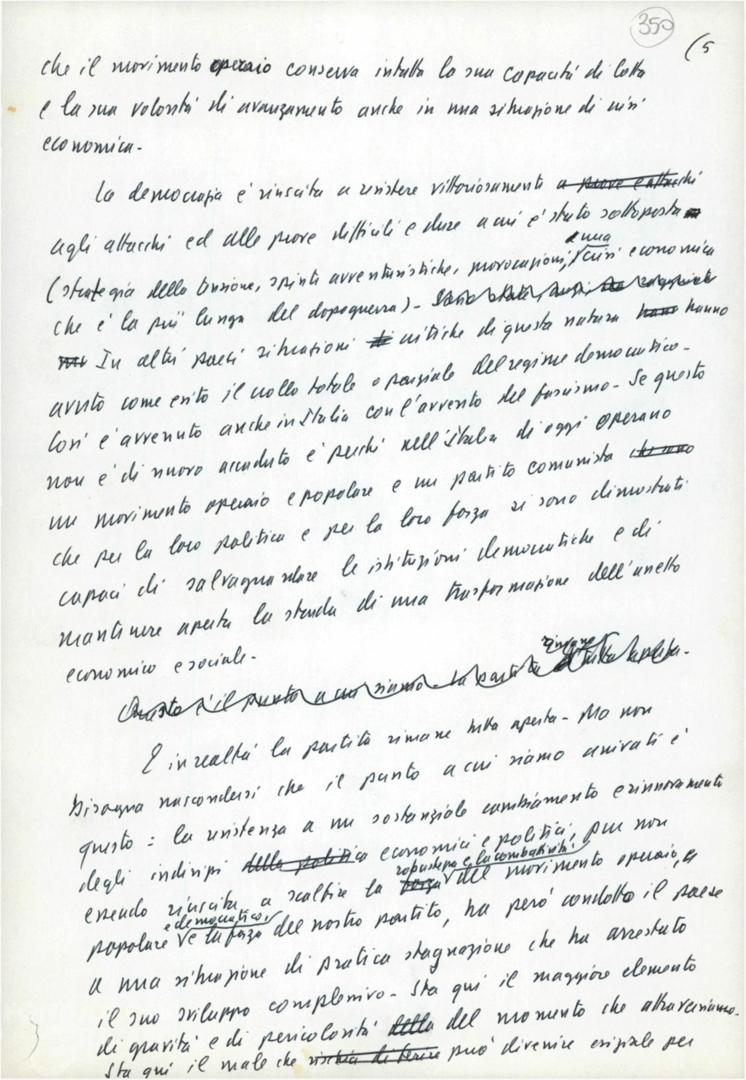 350
(5
che il movimento operaio conserva intatta la sua capacità di lotta
e la sua volontà di avanzamento anche in una situazione di crisi
economica.
La democrazia è riuscita a resistere vittoriosamente a prove e attacchi
agli attacchi ed alle prove difficili e dure a cui è stata sottoposta
e una
(strategia della tensione, spinte avventuristiche, provocazioni, crisi economica
che è la più lunga del dopoguerra).
In altri paesi situazioni critiche di questa natura hanno hanno
avuto come esito il crollo totale o parziale del regime democratico.
Così è avvenuto anche in Italia con l'avvento del fascismo. Se questo
non è di nuovo accaduto è perché nell'Italia di oggi operano
un movimento operaio e popolare e un partito comunista che sono
che per la loro politica e per la loro forza si sono dimostrati
capaci di salvaguardare le istituzioni democratiche e di
mantenere aperta la strada di una trasformazione dell'assetto
economico e sociale.
rimane
Questo è il punto a cui siamo. La partita è tutta aperta.
E in realtà la partita rimane tutta aperta. Ma non
bisogna nascondersi che il punto a cui siamo arrivati è
questo: la resistenza a un sostanziale cambiamento e rinnovamento
degli indirizzi della politica economici e politici, pur non
robustezza e la combatività
essendo riuscita a scalfire la forza del movimento operaio, e
e democratico,
popolare e la forza del nostro partito, ha però condotto il paese
a una situazione di pratica stagnazione che ha arrestato
il suo sviluppo complessivo. Sta qui il maggiore elemento
di gravità e di pericolosità della del momento che attraversiamo.
Sta qui il male che rischia di essere può divenire esiziale per